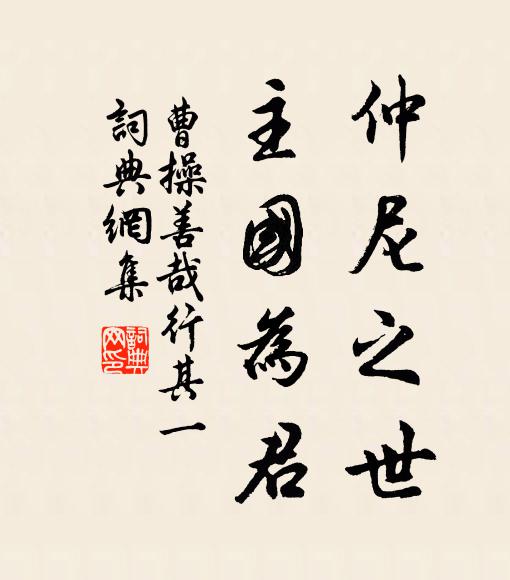 仲尼之世
主國為君
曹操善哉行其一
詞典網集
詞典
网印